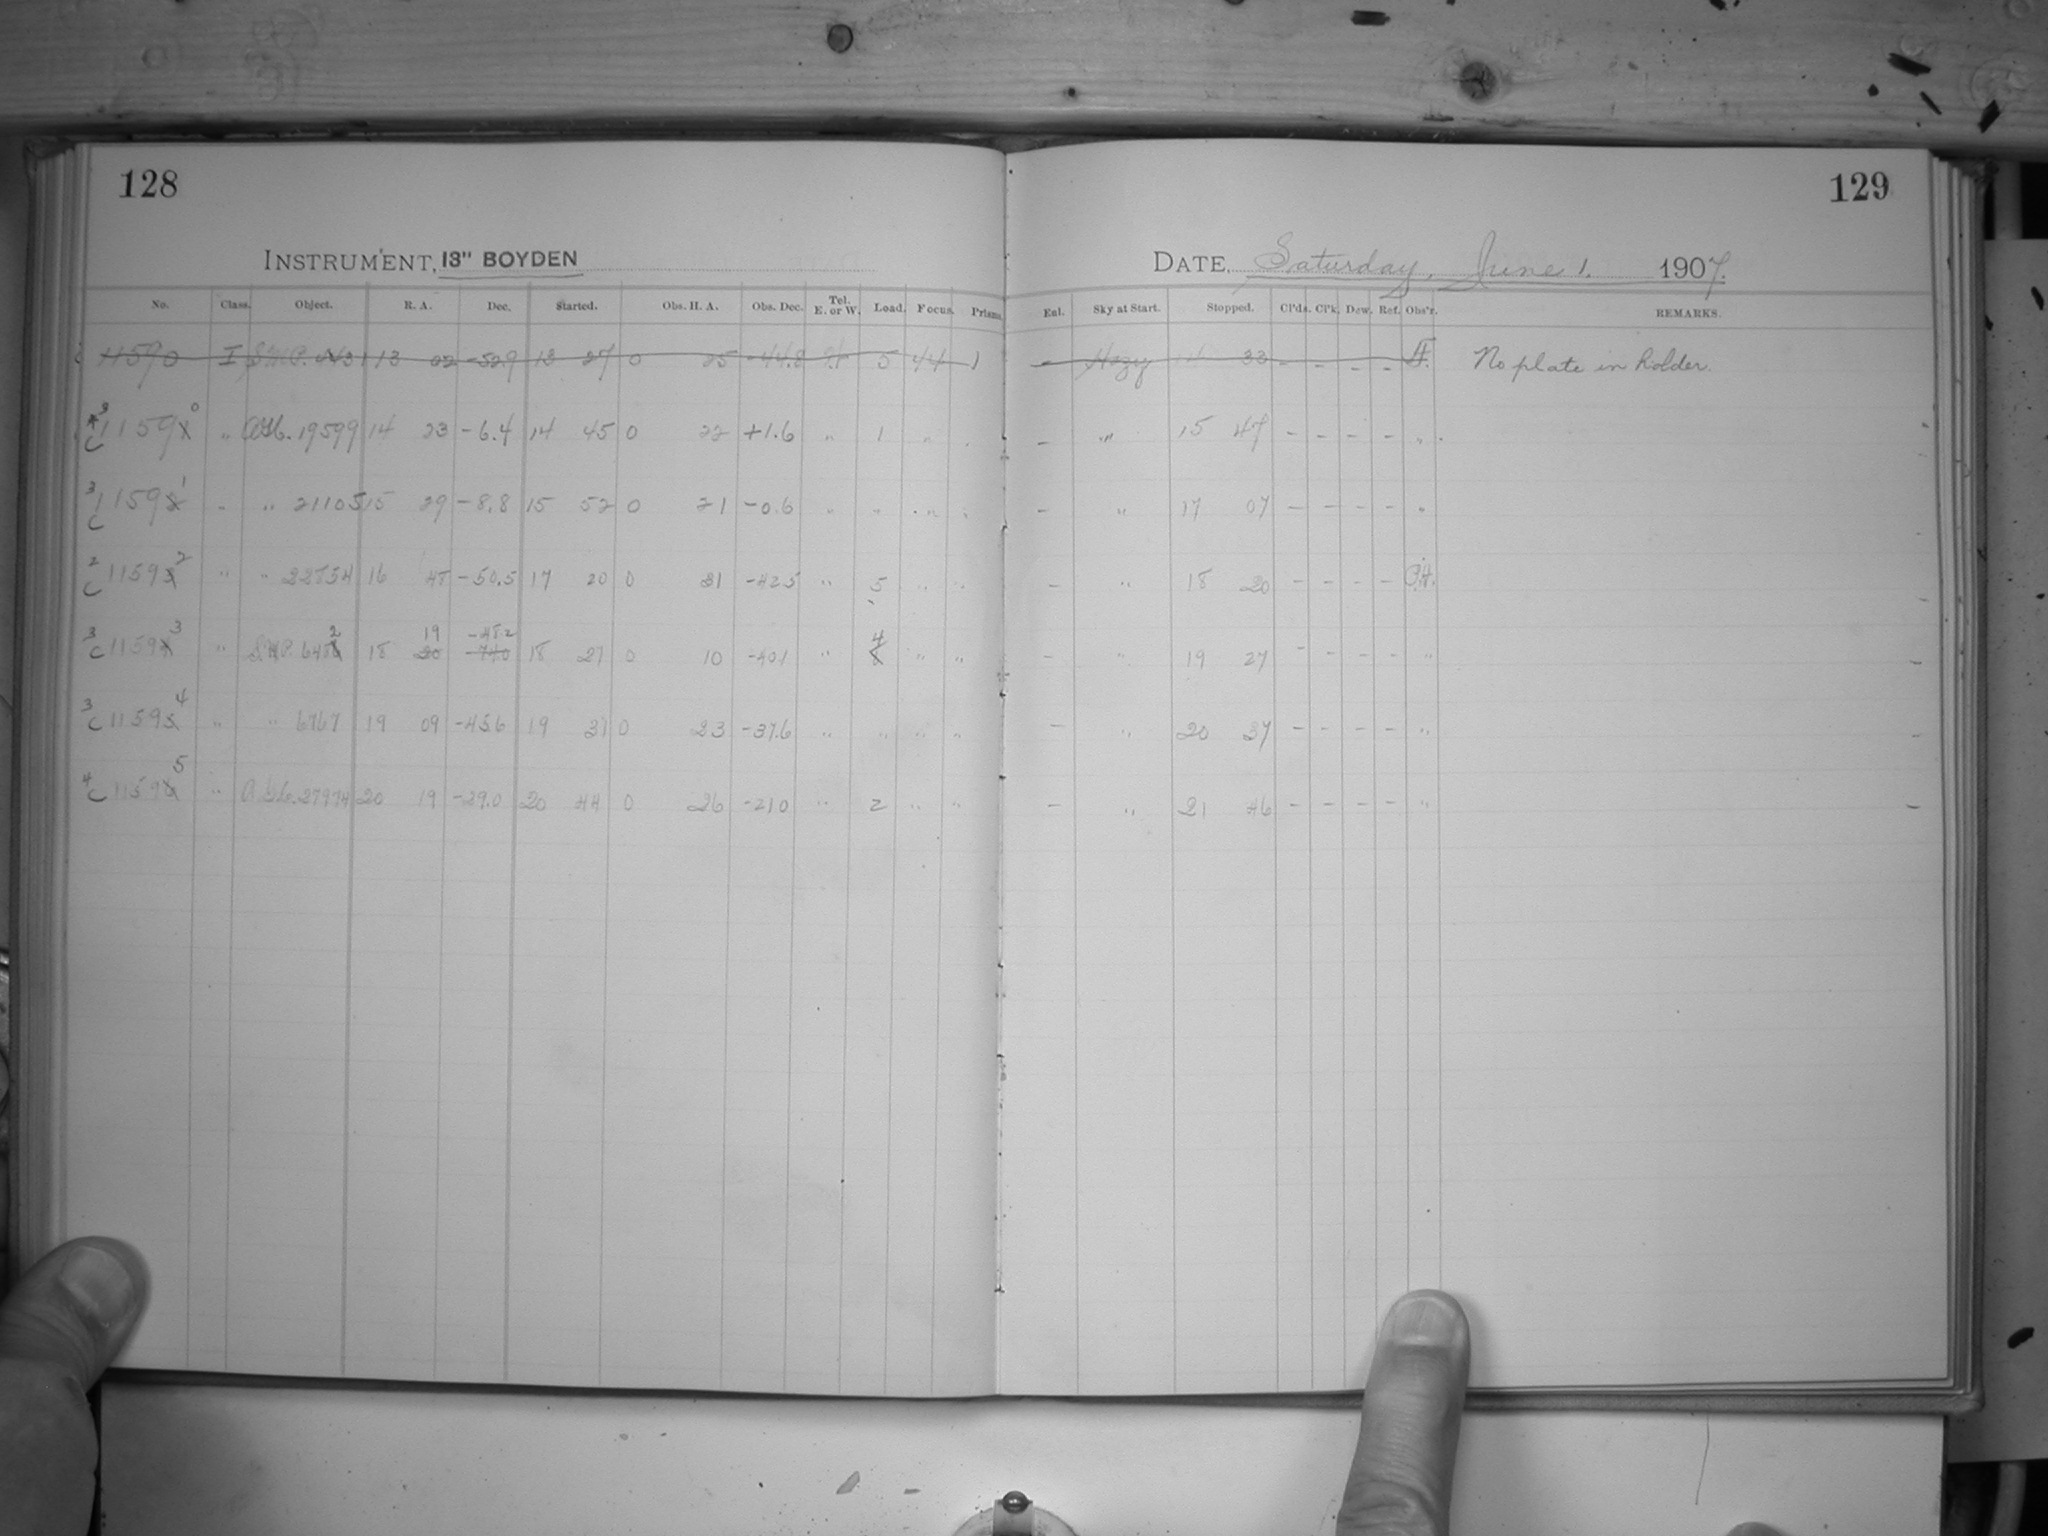 128
129
INSTRUMENT, 13" BOYDEN
DATE, Saturday, June 1. 1907.
No. Class. Object. R. A. Dec. Started. Obs. H. A. Obs. Dec. Tel. E. or W. Load. Focus. Prisms. Enl. Sky at Start. Stopped. Cl'ds. Cl'k. Dew. Ref. Obs'r. REMARKS.
11590 I 13 22 -52.9 13 27 0 25 -44.8 5 44 1 - Hazy 14 33 - - - - No plate in holder.
3 C 1159 0 " 19599 14 23 -6.4 14 45 0 22 +1.6 " 1 " - " 15 47 - - - - "
3 C 1159 1 " " 21105 15 29 -8.8 15 52 0 21 -0.6 " " " " - " 17 07 - - - - "
2 C 1159 2 " " 22854 16 48 -50.5 17 20 0 31 -42.5 " 5 " " - " 18 20 - - - -
3 C 1159 3 " 18 19 -48.2 18 27 0 10 -40.1 " 4 " " - " 19 27 - - - - "
3 C 1159 4 " " 6767 19 09 -45.6 19 31 0 23 -37.6 " " " " - " 20 37 - - - - "
4 C 1159 5 " 27974 20 19 -29.0 20 44 0 26 -21.0 " 2 " " - " 21 46 - - - - "